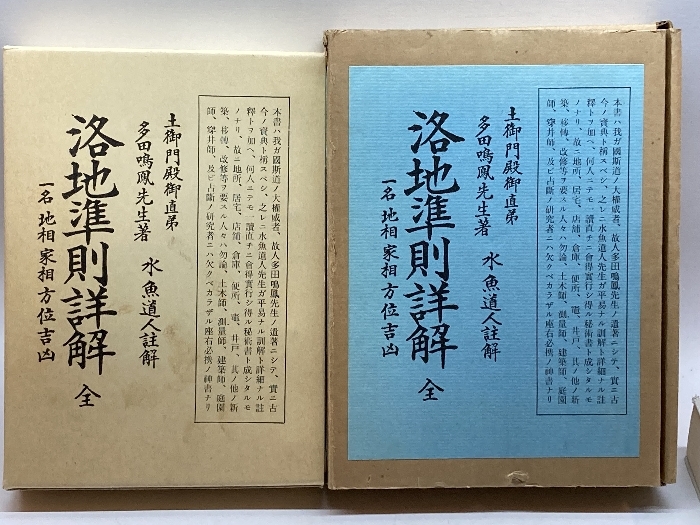 本書ハ我ガ國斯道ノ大權威者、故人多田鳴鳳先生ノ遺著ニシテ、實ニ古
今ノ寶典ト稱スベシ、之レニ水魚道人先生ガ平易ナル訓解ト詳細ナル註
釋トヲ加ヘ、何人ニテモ一讀直チニ會得實行シ得ル秘術書ト成シタルモ
ノナリ、故ニ地所、居宅、店舖、倉庫、便所、竈、井戸、其ノ他ノ新
築、移轉、改修等ヲ要スル人々ハ勿論、土木師、測量師、建築師、庭園
師、穿井師、及ビ占斷ノ研究者ニハ欠クベカラザル座右必携ノ神書ナリ
土御門殿御直弟
多田鳴鳳先生著 水魚道人註解
洛地準則詳解 全
一名 地相家相方位吉凶
本書ハ我ガ國斯道ノ大權威者、故人多田鳴鳳先生ノ遺著ニシテ、實ニ古
今ノ寶典ト稱スベシ、之レニ水魚道人先生ガ平易ナル訓解ト詳細ナル註
釋トヲ加ヘ、何人ニテモ一讀直チニ會得實行シ得ル秘術書ト成シタルモ
ノナリ、故ニ地所、居宅、店舖、倉庫、便所、竈、井戸、其ノ他ノ新
築、移轉、改修等ヲ要スル人々ハ勿論、土木師、測量師、建築師、庭園
師、穿井師、及ビ占斷ノ研究者ニハ欠クベカラザル座右必携ノ神書ナリ
土御門殿御直弟
多田鳴鳳先生著 水魚道人註解
洛地準則詳解 全
一名 地相家相方位吉凶